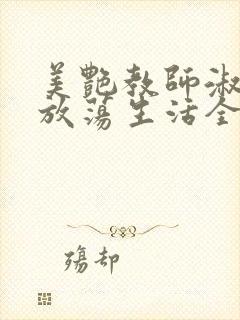 美艷教師淑
放蕩生活全
殤却